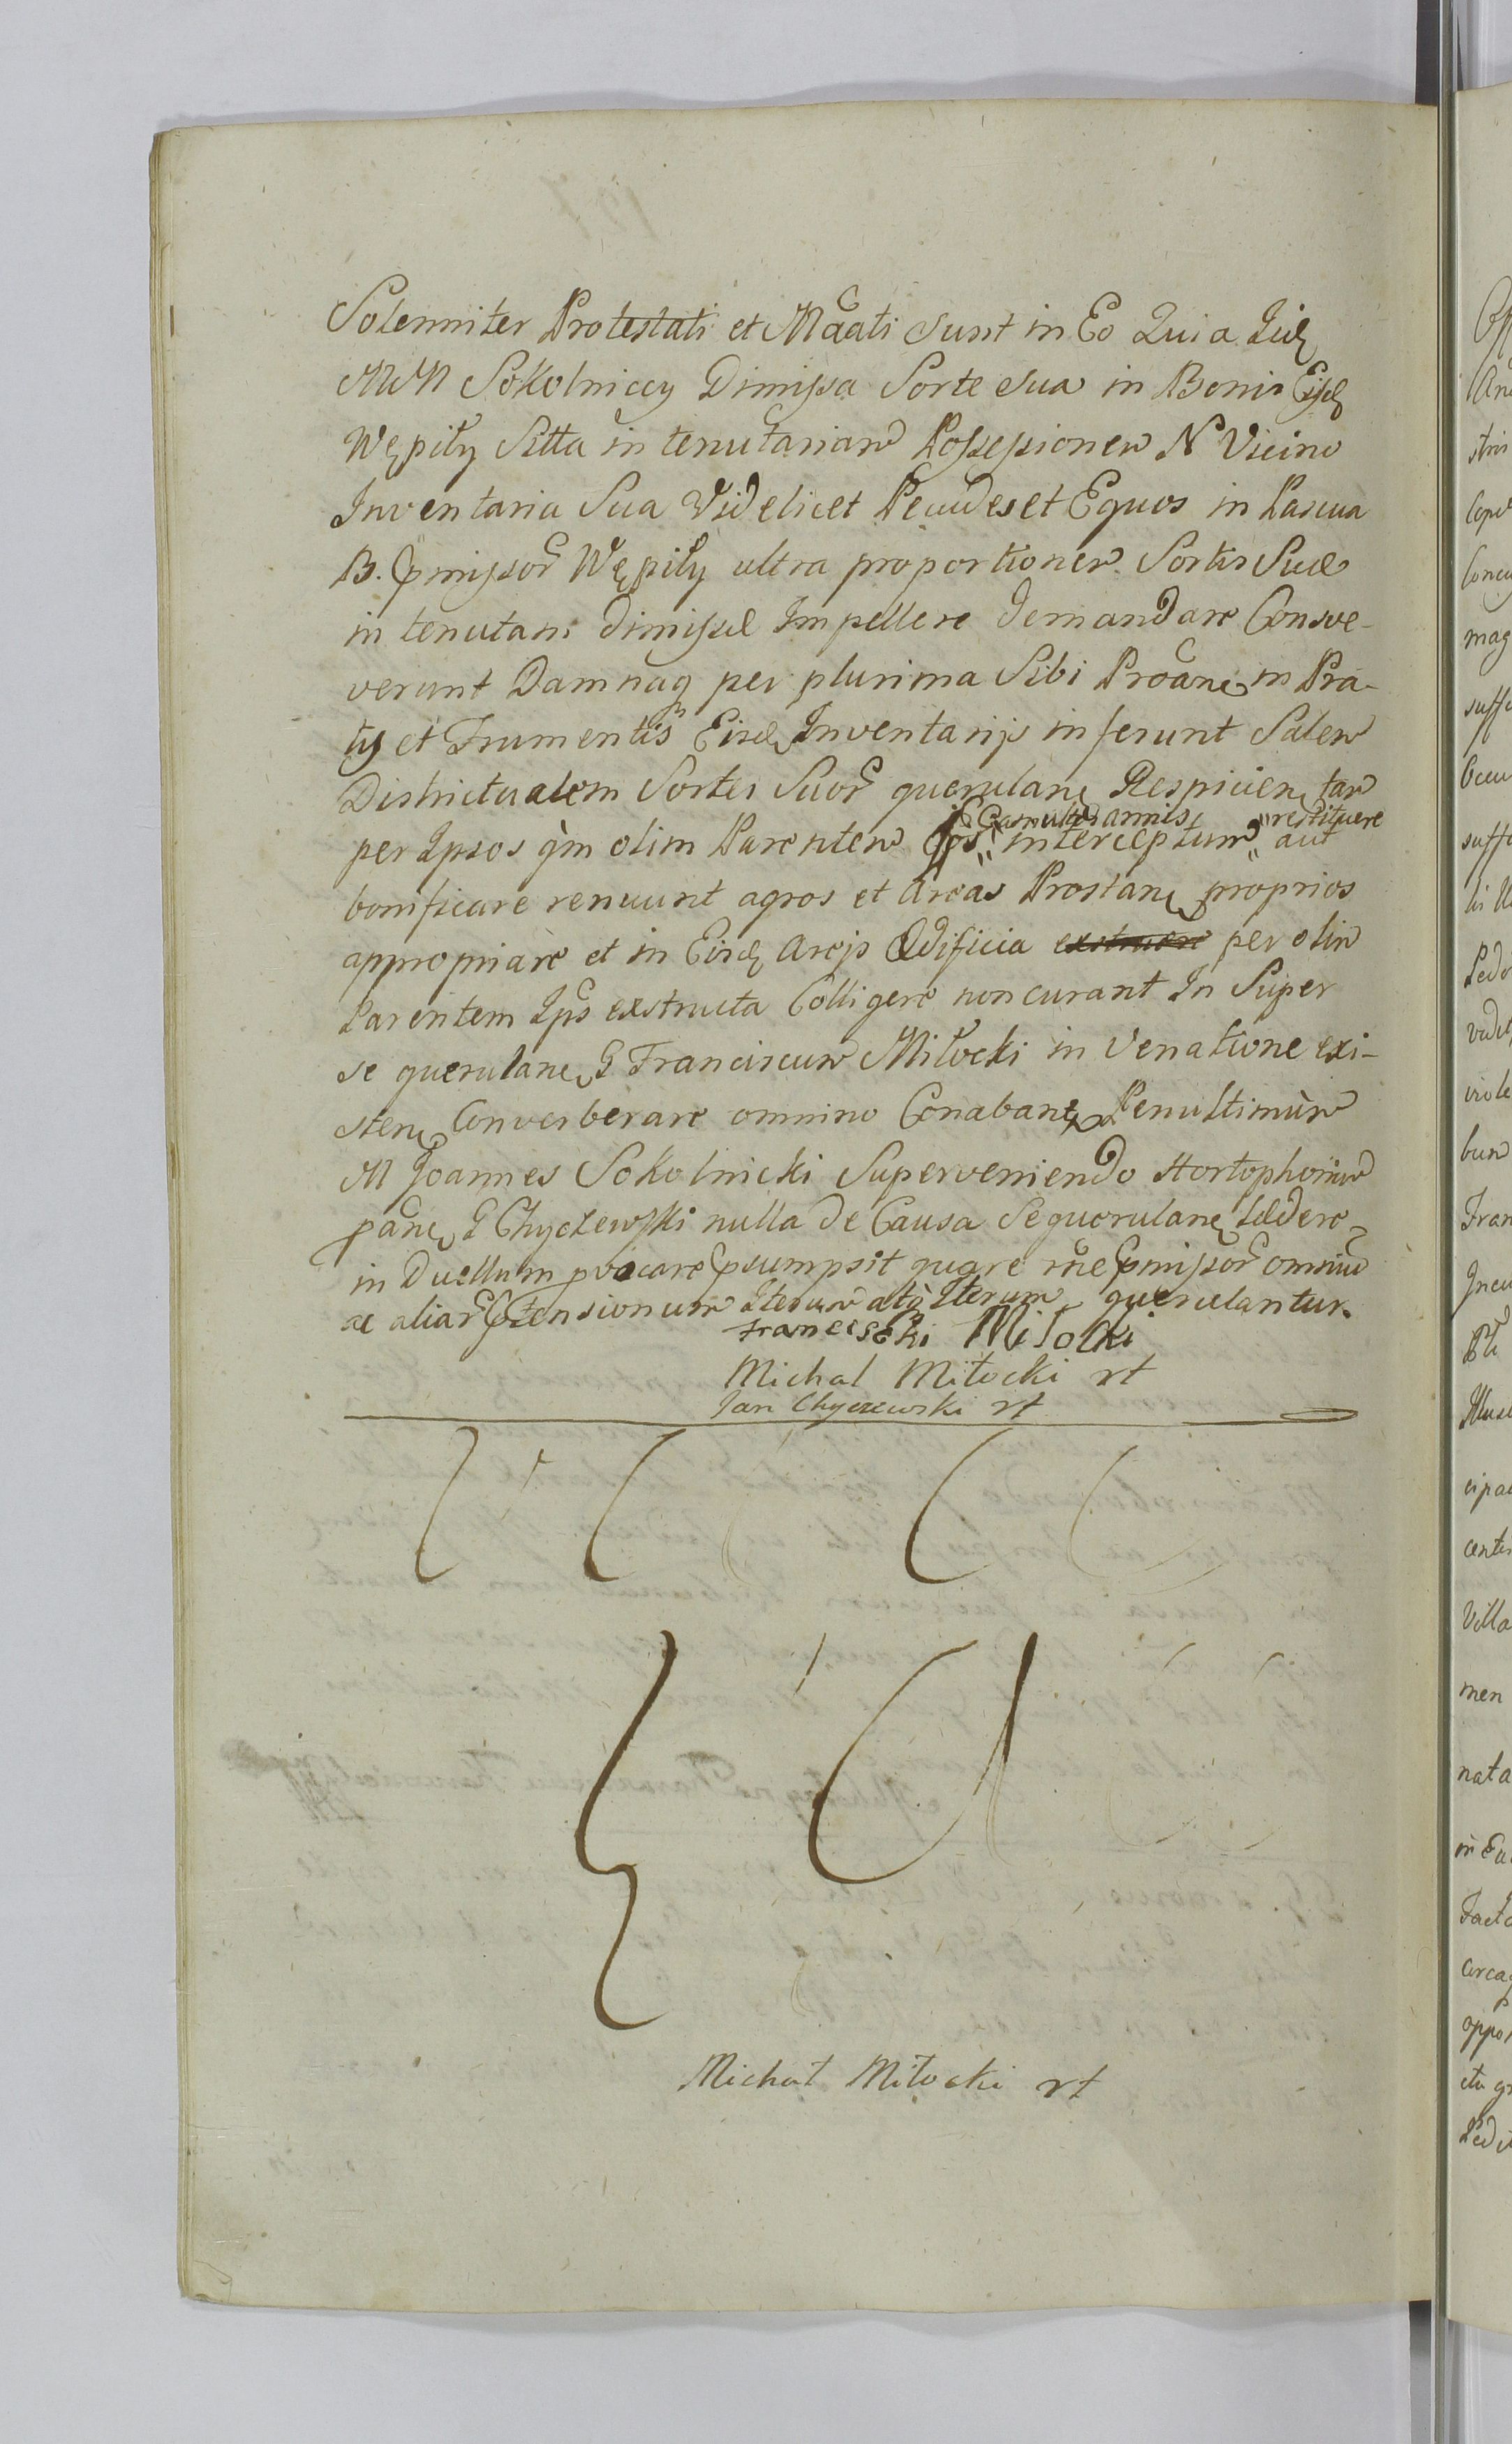 Solenniter Protestati et Maãti sunt in Eo Quia Iid
MM Sokolniccy Dimissa Sorte sua in Bonis Eisd
Wępiły Sitta in tenutariam Possessionem N Vicino
Inventaria Sua Videlicet Pecudes et Equos in Pascua
B. pmissor Wępiły ultra proportionem Sortis Suæ
in tenutam dimissæ Impellere demandare Consve-
verunt Damnaq per plurima Sibi Proane in Pra-
tis et Frumentis Eisd Inventarijs inferunt Salem
Districtualem Sortes Suor querulan Respicien tam
per Ipsos qm olim Parentem Ipos " a multis annis
interceptum " restituere aut
bonificare renuunt agros et Areas Prostan proprios
appropriare et in Eisd Areis Ædificia exstruere per olim
Parentem Ipos exstructa Colligere non curant In Super
se querulane G Franciscum Miłocki in Venatione exi-
sten Converberare omnino Conaban Penultimùm
M Joannes Sokolnicki Superveniendo
pane G Chyczewski nulla de Causa Se querulane Lædere
in Duellum pvocare psumpsit quare rne pmissor omnium
ac aliar ptensionum Iterum atq Iterum querulantur.
Franciszek Miłocki
Michał Miłocki rt
Jan Chyczewski rt
Michał Miłocki rt